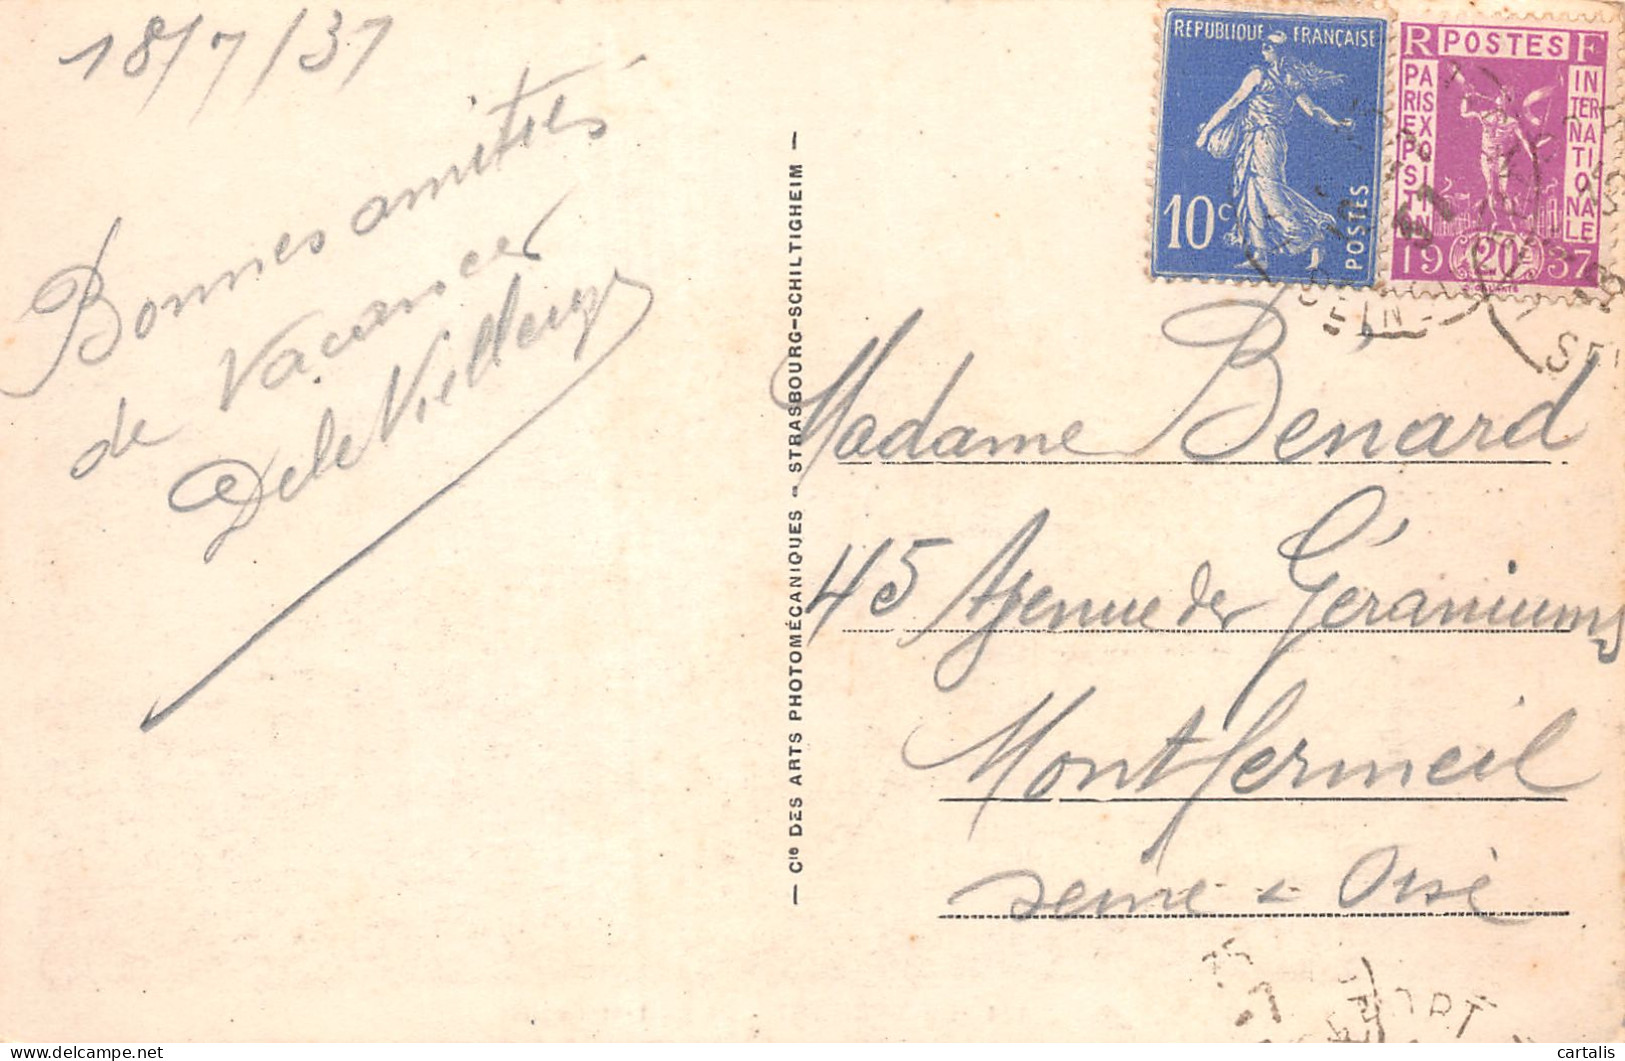 18/7/37
Bonnes amitiés
de Vacances
— Cie DES ARTS PHOTOMÉCANIQUES - STRASBOURG-SCHILTIGHEIM —
RÉPUBLIQUE FRANÇAISE
10c
POSTES
R POSTES F
PARIS EXPOSITION
INTERNATIONALE
19 20c 37
SEINE
Madame Bénard
45 Avenue des Géraniums
Montfermeil
Seine & Oise
cartalis
delcampe.net